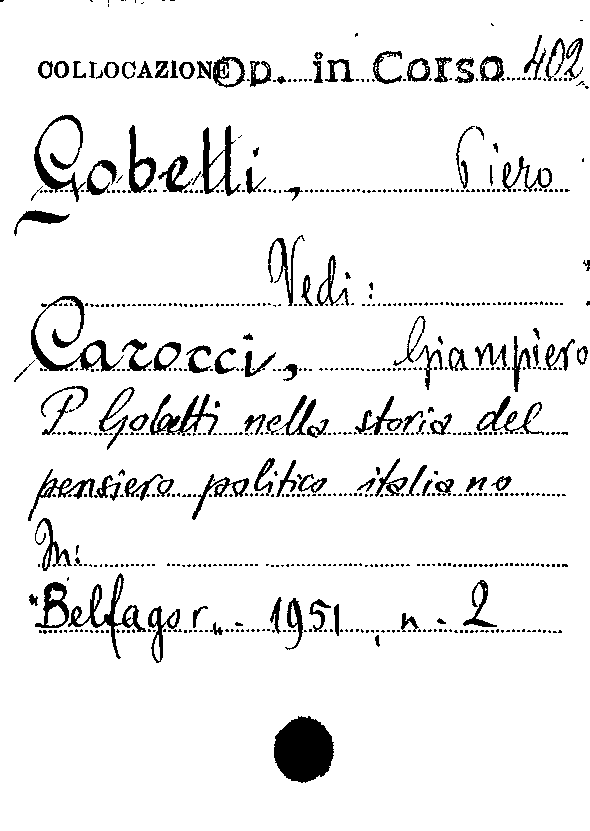 COLLOCAZIONE Op. in Corso 402
Gobetti, Piero
Vedi:
Carocci, Giampiero
P. Gobetti nella storia del
pensiero politico italiano
In:
"Belfagor„ - 1951, n. 2